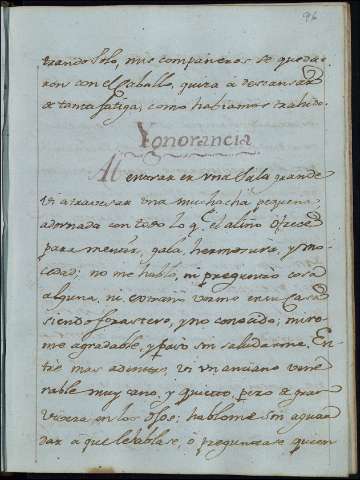 96
trando solo, mis compañeros se queda-
ron con el Caballo, quiza à descansar
de tanta fatiga, como habiamos trahido.
Ygnorancia
Al entrar en una Sala grande
vi atravesar una muchacha pequena,
adornada con todo lo q.e el aliño ofrece
para mentir, gala, hermosura, y mo-
cedad; no me habló, ni preguntó cosa
alguna, ni como en su Casa
siendo forastero, y no conocido; miro-
me agradable, y pasó sin saludarme. En-
trè mas adentro, vi un anciano vene-
rable muy cano, y quieto, pero de gran
viveza en los ojos; hablome sin aguar-
dar à que le hablase, ò preguntase quien